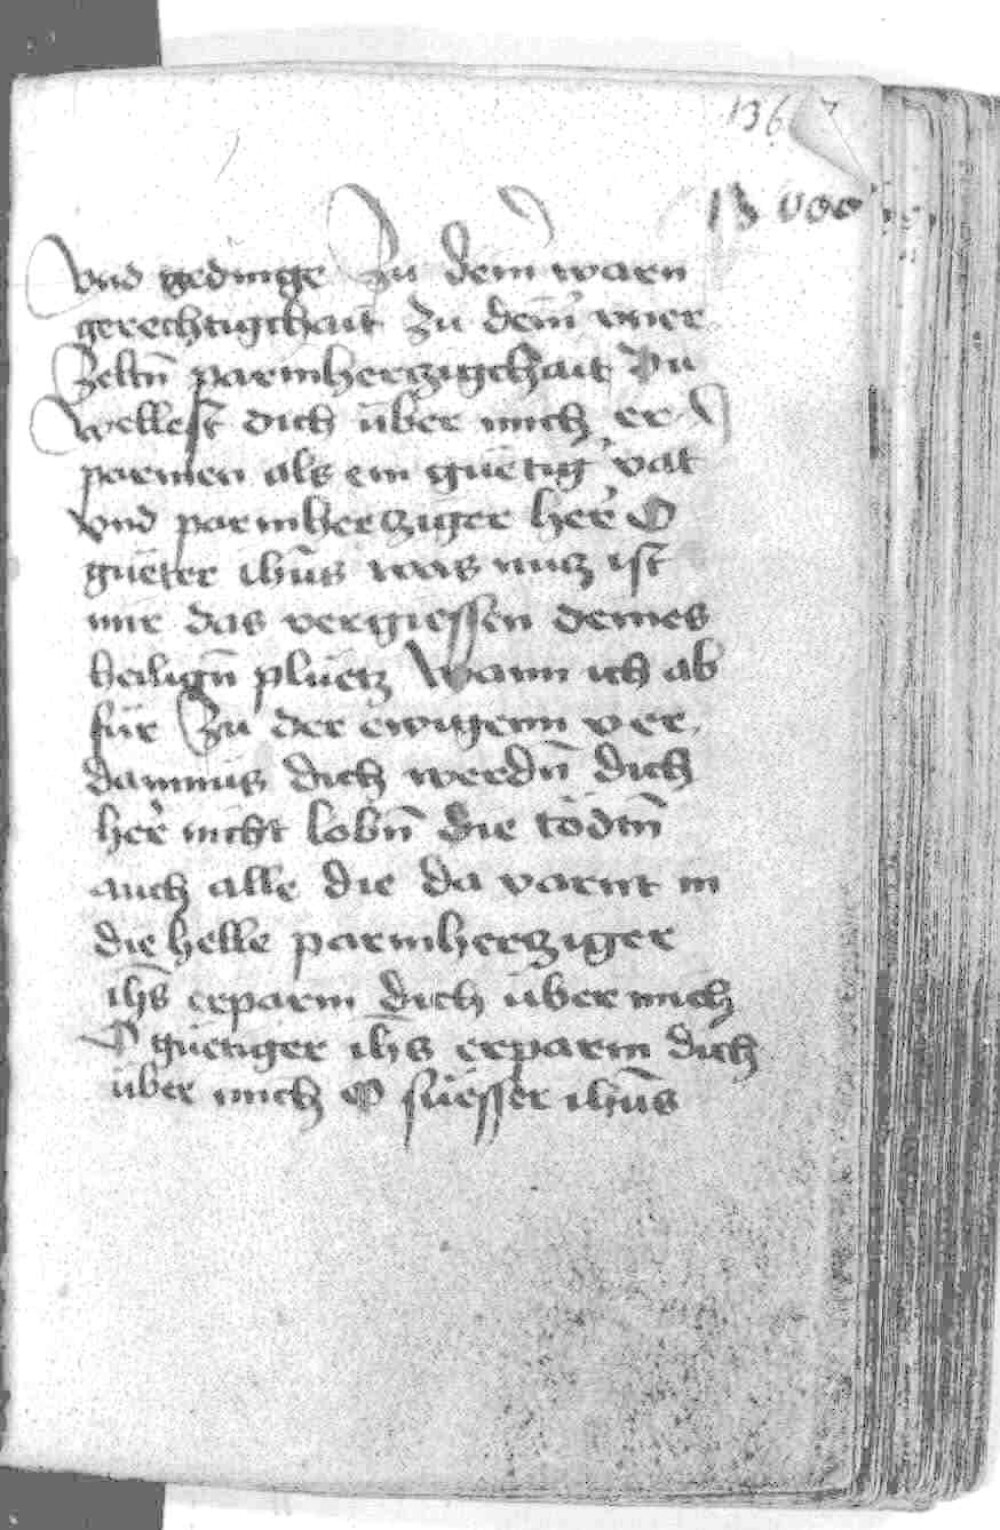 136
vnd gedinge Zu dem̄ warn
gerechtigchait zu dem̄
Zeltn̄ parmherczigchait Du
wellest dich über mich er
parmen als ein güetig' vat
vnd parmhercziger her' O
güeter ihūs was nucz ist
mir das vergiessen deines
heilign̄ plüetz Wann ich ab
für Zu der ewigenn ver
damnüs dich werdn̄ dich
her' nicht lobn̄ die tödtn̄
auch alle die da varnt in
die helle parmhercziger
ih̄s erparm dich über mich
O güetiger ih̄s erparm dich
über mich O süesser ihūs